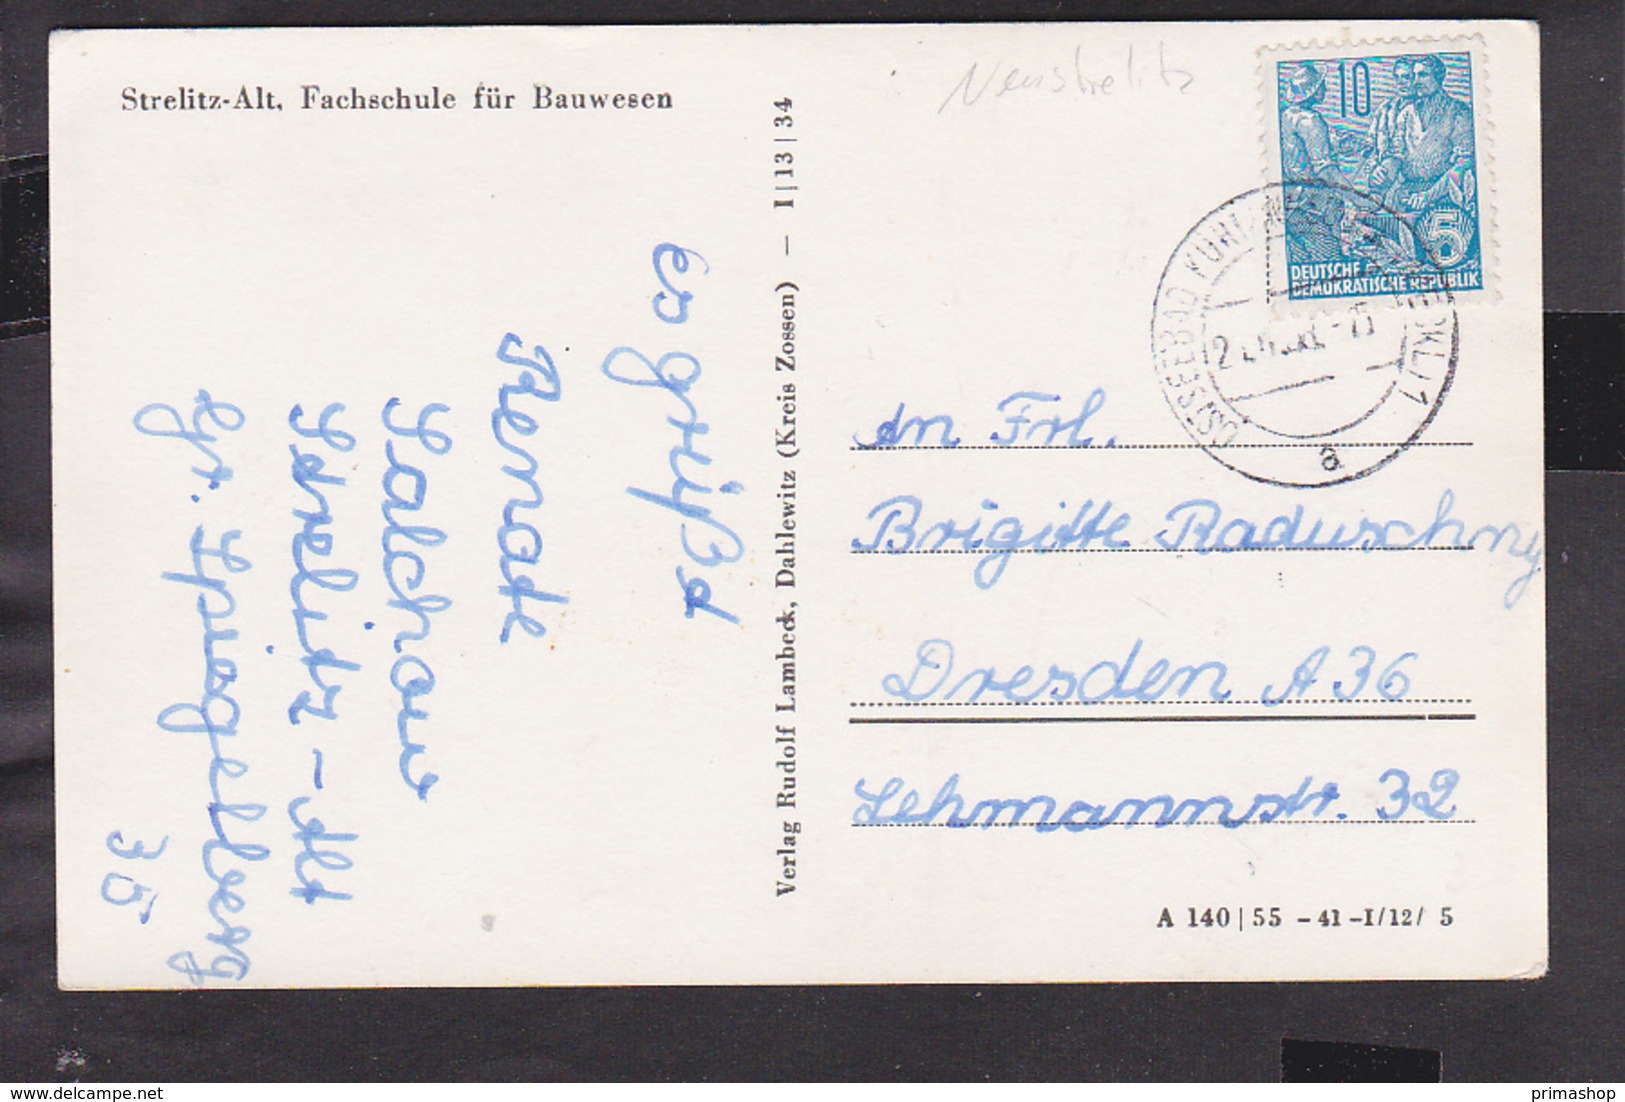 Strelitz-Alt, Fachschule für Bauwesen
Neustrelitz
10
5
DEUTSCHE
DEMOKRATISCHE REPUBLIK
OSTSEEBAD
a
Verlag Rudolf Lambeck, Dahlewitz (Kreis Zossen) — I|13|34
es grüßd
Renate
Salchow
Strelitz-Alt
gr. Spiegelberg
35
An Frl.
Brigitte Raduschny
Dresden A 36
Lehmannstr. 32
A 140|55 - 41 - I/12/ 5
delcampe.net
primashop